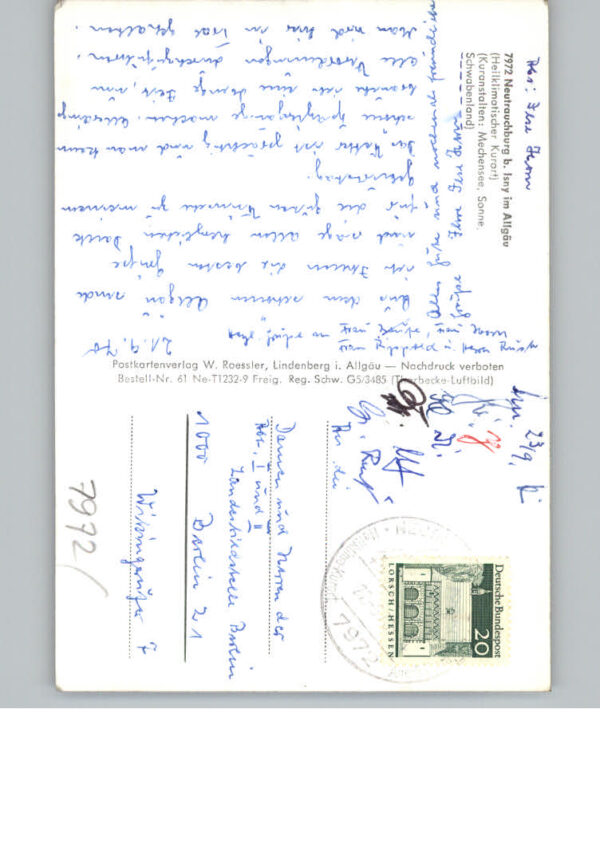 Abs.: Ilse
7972 Neutrauchburg b. Isny im Allgäu
(Heilklimatischer Kurort)
(Kuranstalten: Mechensee, Sonne,
Schwabenland)
21.9.70
Aus dem schönen Allgäu sende
ich Ihnen die besten Grüße
und sage allen herzlichen Dank
für die guten Wünsche zu meinem
Geburtstag.
Das Wetter ist prächtig und man kann
schöne Spaziergänge machen. Allerdings
brauche ich eine Menge Zeit, um
alle Verordnungen durchzuführen.
Man wird hier in Trab gehalten.
Alles Gute und nochmals freundliche
Grüße
Ihre Ilse
Postkartenverlag W. Roessler, Lindenberg i. Allgäu — Nachdruck verboten
Bestell-Nr. 61 Ne-T1232-9 Freig. Reg. Schw. G5/3485 (Thorbecke-Luftbild)
23/9.
An die
Damen und Herren der
Abt. I und II
Landesbildstelle Berlin
1000 Berlin 21
Wikingerufer 7
7972
Deutsche Bundespost
20
LORSCH/HESSEN
7972